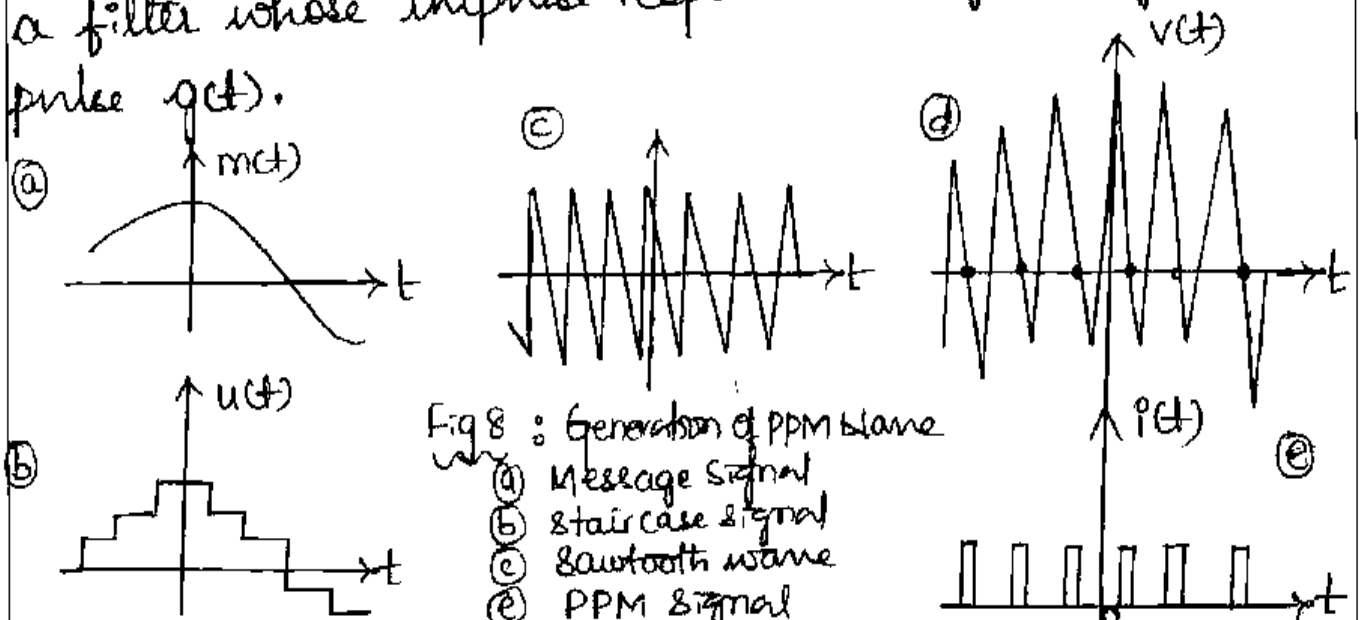 a filter whose
pulse g(t).
ⓐ
m(t)
t
ⓒ
t
ⓓ
v(t)
t
ⓑ
u(t)
t
Fig 8 : Generation of PPM Wave
ⓐ Message Signal
ⓑ staircase signal
ⓒ Sawtooth wave
ⓔ PPM Signal
i(t)
ⓔ
t